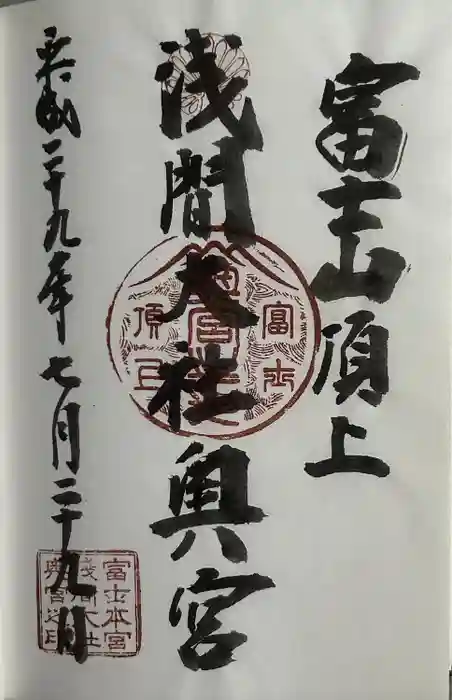 富士山頂上
浅間大社奥宮
平成二十九年七月二十九日
富士
頂上
奥宮
富士本宮
浅間大社
奥宮之印